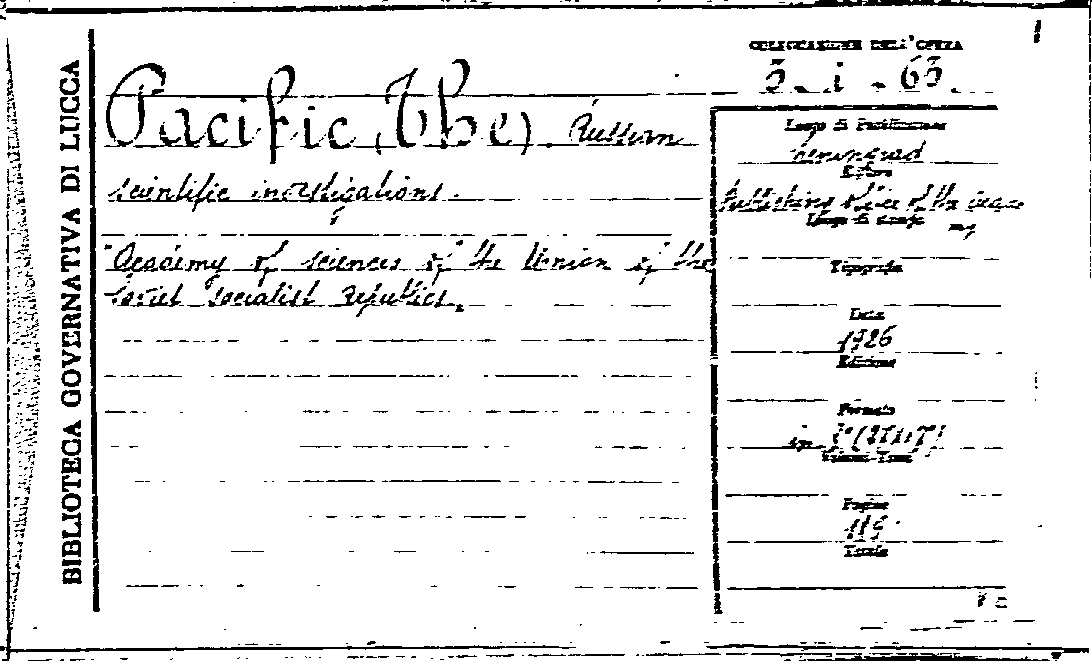 BIBLIOTECA GOVERNATIVA DI LUCCA
COLLOCAZIONE DELL'OPERA
3. i. 63.
Pacific (The). Russian
scientific investigations.
"Academy of sciences of" the Union of the
Soviet Socialist republics.
Luogo di Pubblicazione
Leningrad
Editore
Publishing office of the
Luogo di stampa
Tipografia
Data
1926
Edizione
Formato
in 8°
Volumi-Tomi
Pagine
Tavole